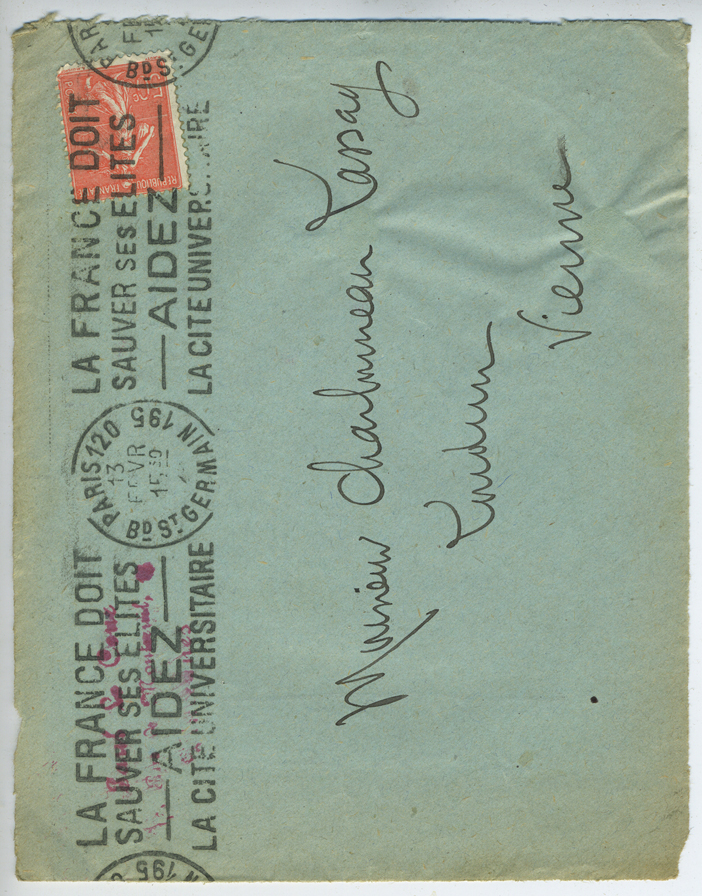 LA FRANCE DOIT
SAUVER SES ELITES
— AIDEZ —
LA CITE UNIVERSITAIRE
PARIS 120
13
FEVR
15 30
BD ST GERMAIN
LA FRANCE DOIT
SAUVER SES ELITES
— AIDEZ —
LA CITE UNIVERSITAIRE
BD ST GE
Monsieur Charbonneau Lassay
Loudun
Vienne